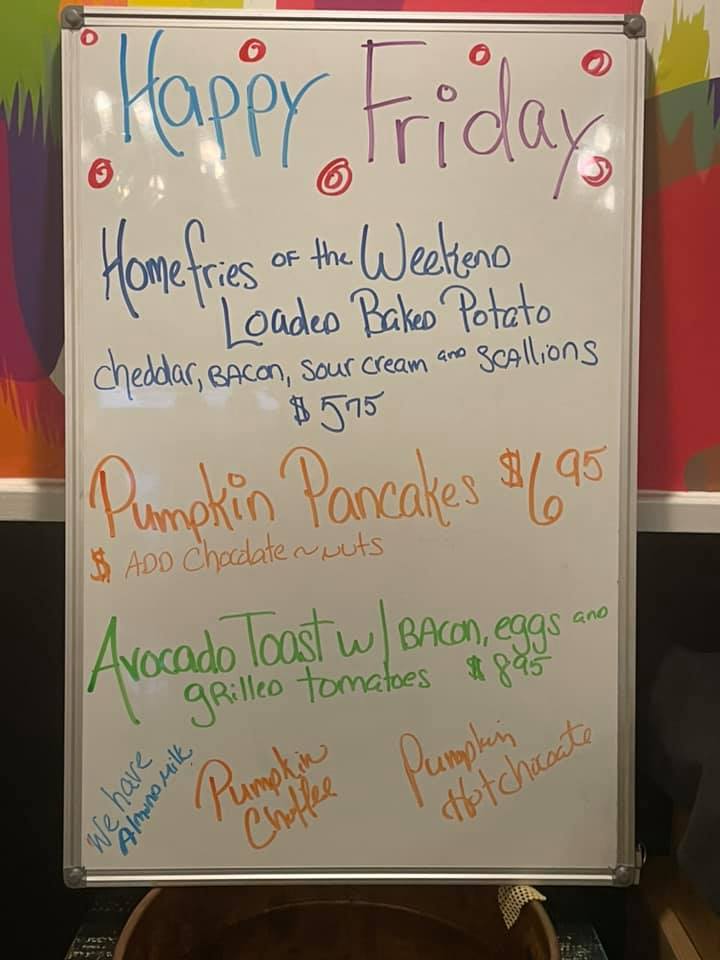 Happy Friday
Homefries of the Weekend
Loaded Baked Potato
cheddar, BACON, sour cream and scallions
$ 575
Pumpkin Pancakes $6 95
$ ADD Chocolate ~ nuts
Avocado Toast w/ BACON, eggs and
grilled tomatoes $ 895
We have
Almond Milk
Pumpkin
Choffee
Pumpkin
Hot chocoate